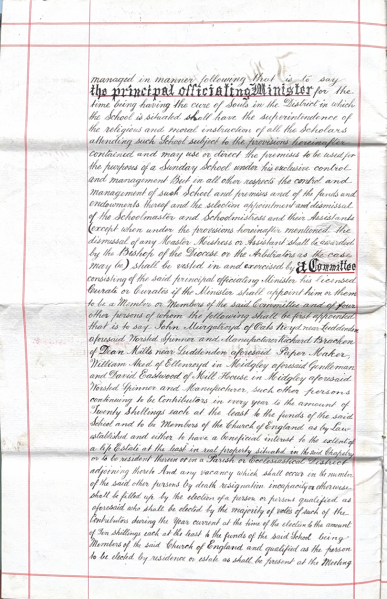 managed in manner following that is to say
the principal officiating Minister for the
time being having the cure of Souls in the District in which
the School is situated shall have the superintendence of
the religious and moral instruction of all the Scholars
attending such School subject to the provisions hereinafter
contained and may use or direct the premises to be used for
the purposes of a Sunday School under his exclusive control
and management But in all other respects the control and
management of such School and premises and of the funds and
endowments thereof and the selection appointment and dismissal
of the Schoolmaster and Schoolmistress and their Assistants
(except when under the provisions hereinafter mentioned the
dismissal of any Master Mistress or Assistant shall be awarded
by the Bishop of the Diocese or the Arbitrators as the case
may be) shall be vested in and exercised by a Committee
consisting of the said principal officiating Minister his licensed
Curate or Curates if the Minister shall appoint him or them
to be a Member or Members of the said Committee and of four
other persons of whom the following shall be first appointed
that is to say John Murgatroyd of Oats Royd near Luddenden
aforesaid Worsted Spinner and Manufacturer Richard Bracken
of Dean Mills near Luddenden aforesaid Paper Maker
William Aked of Ellenroyd in Midgley aforesaid Gentleman
and David Eastwood of Mill House in Midgley aforesaid
Worsted Spinner and Manufacturer, such other persons
continuing to be Contributors in every year to the amount of
Twenty Shillings each at the least to the funds of the said
School and to be Members of the Church of England as by Law
established and either to have a beneficial interest to the extent of
a life Estate at the least in real property situated in the said Chapelry
or to be resident therein or in a Parish or Ecclesiastical District
adjoining thereto And any vacancy which shall occur in the number
of the said other persons by death resignation incapacity or otherwise
shall be filled up by the election of a person or persons qualified as
aforesaid who shall be elected by the majority of votes of such of the
Contributors during the Year current at the time of the election to the amount
of Ten shillings each at the least to the funds of the said School being
Members of the said Church of England and qualified as the person
to be elected by residence or estate as shall be present at the Meeting